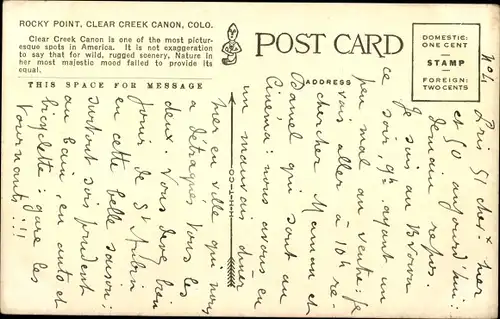 ROCKY POINT, CLEAR CREEK CANON, COLO.
Clear Creek Canon is one of the most pictur-
esque spots in America. It is not exaggeration
to say that for wild, rugged scenery, Nature in
her most majestic mood failed to provide its
equal.
THIS SPACE FOR MESSAGE
POST CARD
ADDRESS
DOMESTIC:
ONE CENT
STAMP
FOREIGN:
TWO CENTS
H-H-T-CO
51 hier
et 50 aujourd'hui.
demain repos.
Je suis au
ce soir, 9h ayant un
peu mal au ventre: je
vais aller à 10h re-
chercher Maman et
Daniel qui sont au
Cinéma: nous avons eu
un mauvais diner
hier en ville qui nous
a détraqués tous les
deux. Vous devez bien
jouir de St Aubin
en cette belle saison:
surtout sois prudent
au bain, en auto et
bicyclette: gare les
tournants!!!